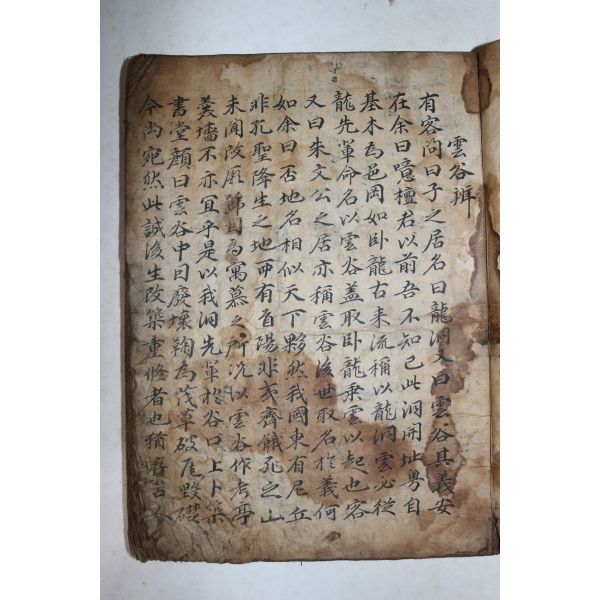 雲谷辨
有客尚曰子之居名曰龍洞又曰雲谷其義安
在余曰噫檀君以前吾不知已此洞開址粤自
基木為邑岡如卧龍古来流稱以龍洞雲必從
龍先軰命名以雲谷盖取卧龍乗雲以起也客
又曰朱文公之居亦稱雲谷後世取名扵義何
如余曰否地名相似天下夥然我國東有尼丘
非孔聖降生之地西有首陽非夷齊餓死之山
未聞改廢歸目為寓慕之所况以雲谷作考亭
羮墻不亦宜乎是以我洞先軰扵谷口上卜築
書堂顔曰雲谷中因廢壊鞠為茂草破瓦毁礎
今尚宛然此誠後生改築重修者也猶